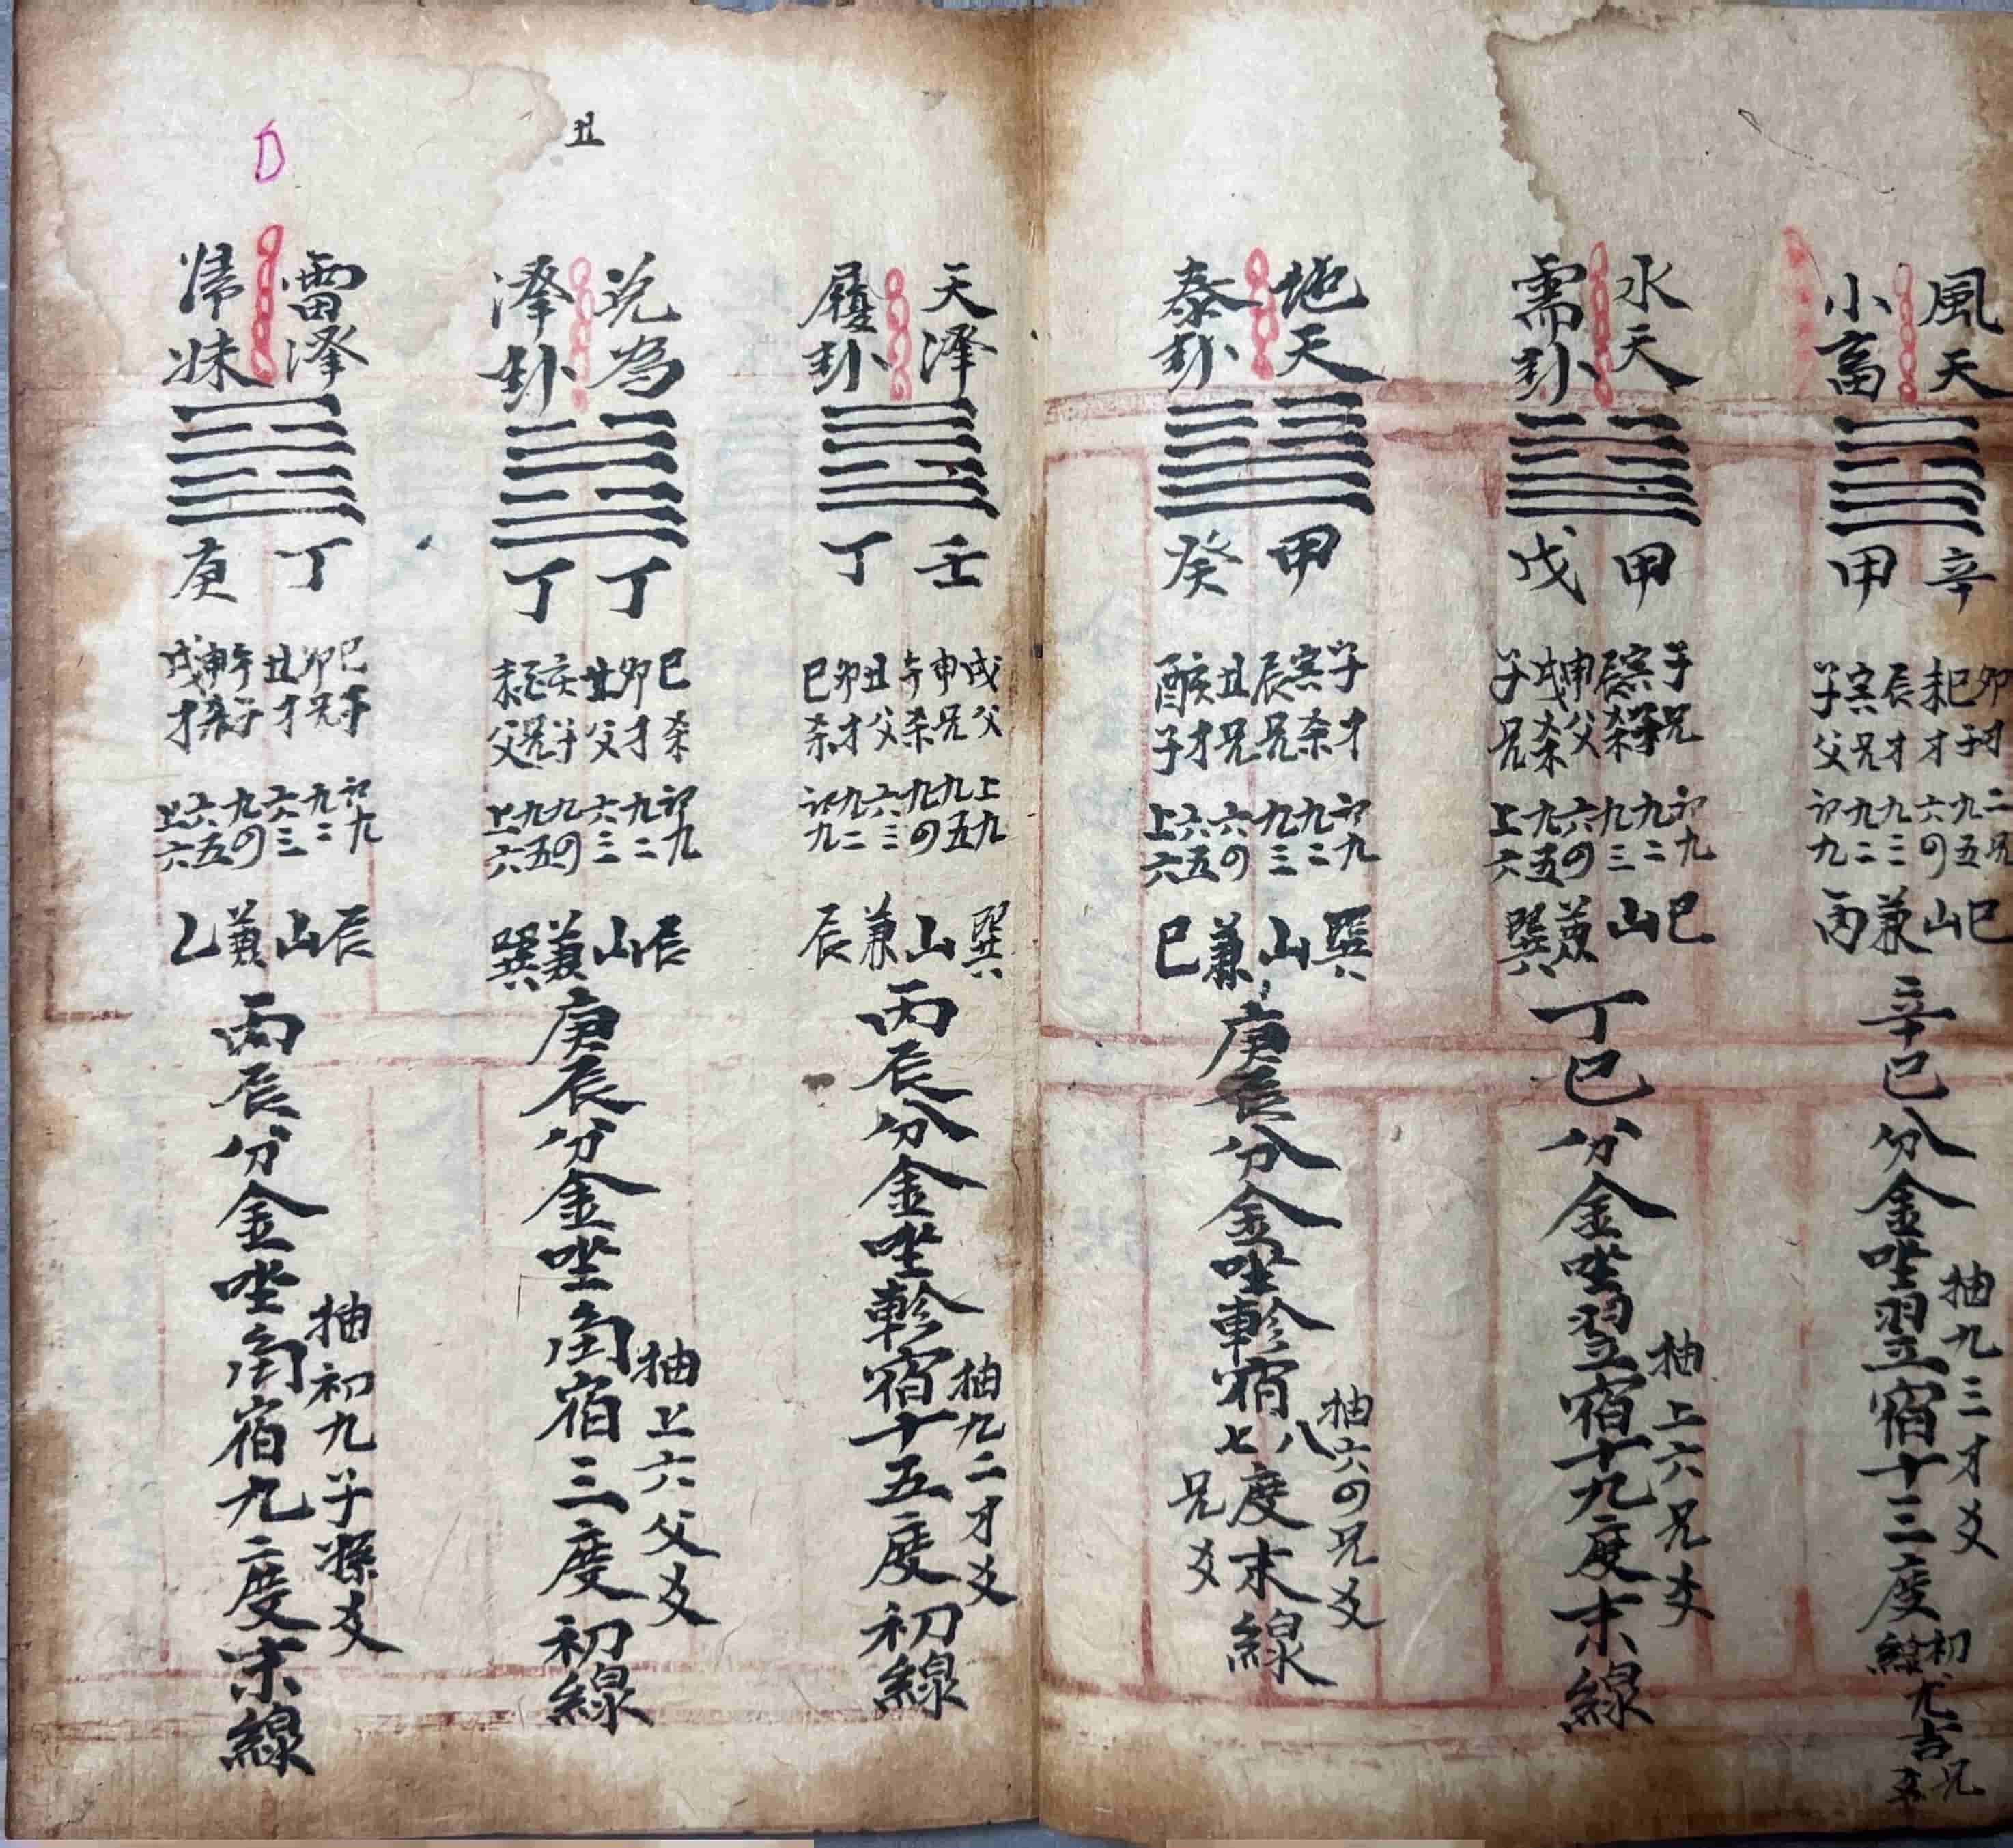 風天
小畜
辛 甲
卯巳未辰寅子
才子才才兄父
二九六九九初
兄五の三二九
巳山兼丙
辛巳分金坐翌宿十三度初線
尤吉
抽九三才爻
水天
需卦
甲 戊
子寅辰申戌子
兄
父
兄
初九九六九上
九二三の五六
巳山兼巽
丁巳分金坐翌宿十九度末線
抽上六兄爻
地天
泰卦
甲 癸
子寅辰丑亥酉
才杀兄兄才子
初九九六六上
九二三の五六
巽山兼巳
庚辰分金坐軫宿七八度末線
抽六の兄爻
兄爻
天泽
履卦
壬 丁
戌申午丑卯巳
父兄杀父才杀
上九九六九初
九五の三二九
巽山兼辰
丙辰分金坐軫宿十五度初線
抽九二才爻
兑為
泽卦
丁 丁
巳卯丑亥酉未
杀才父子兄父
初九六九九上
九二三の五六
辰山兼巽
庚辰分金坐角宿三度初線
抽上六父爻
丑
雷泽
帰妹
丁 庚
巳卯丑午申戌
初九六九六上
九二三の五六
辰山兼乙
丙辰分金坐角宿九二度末線
抽初九子孫爻